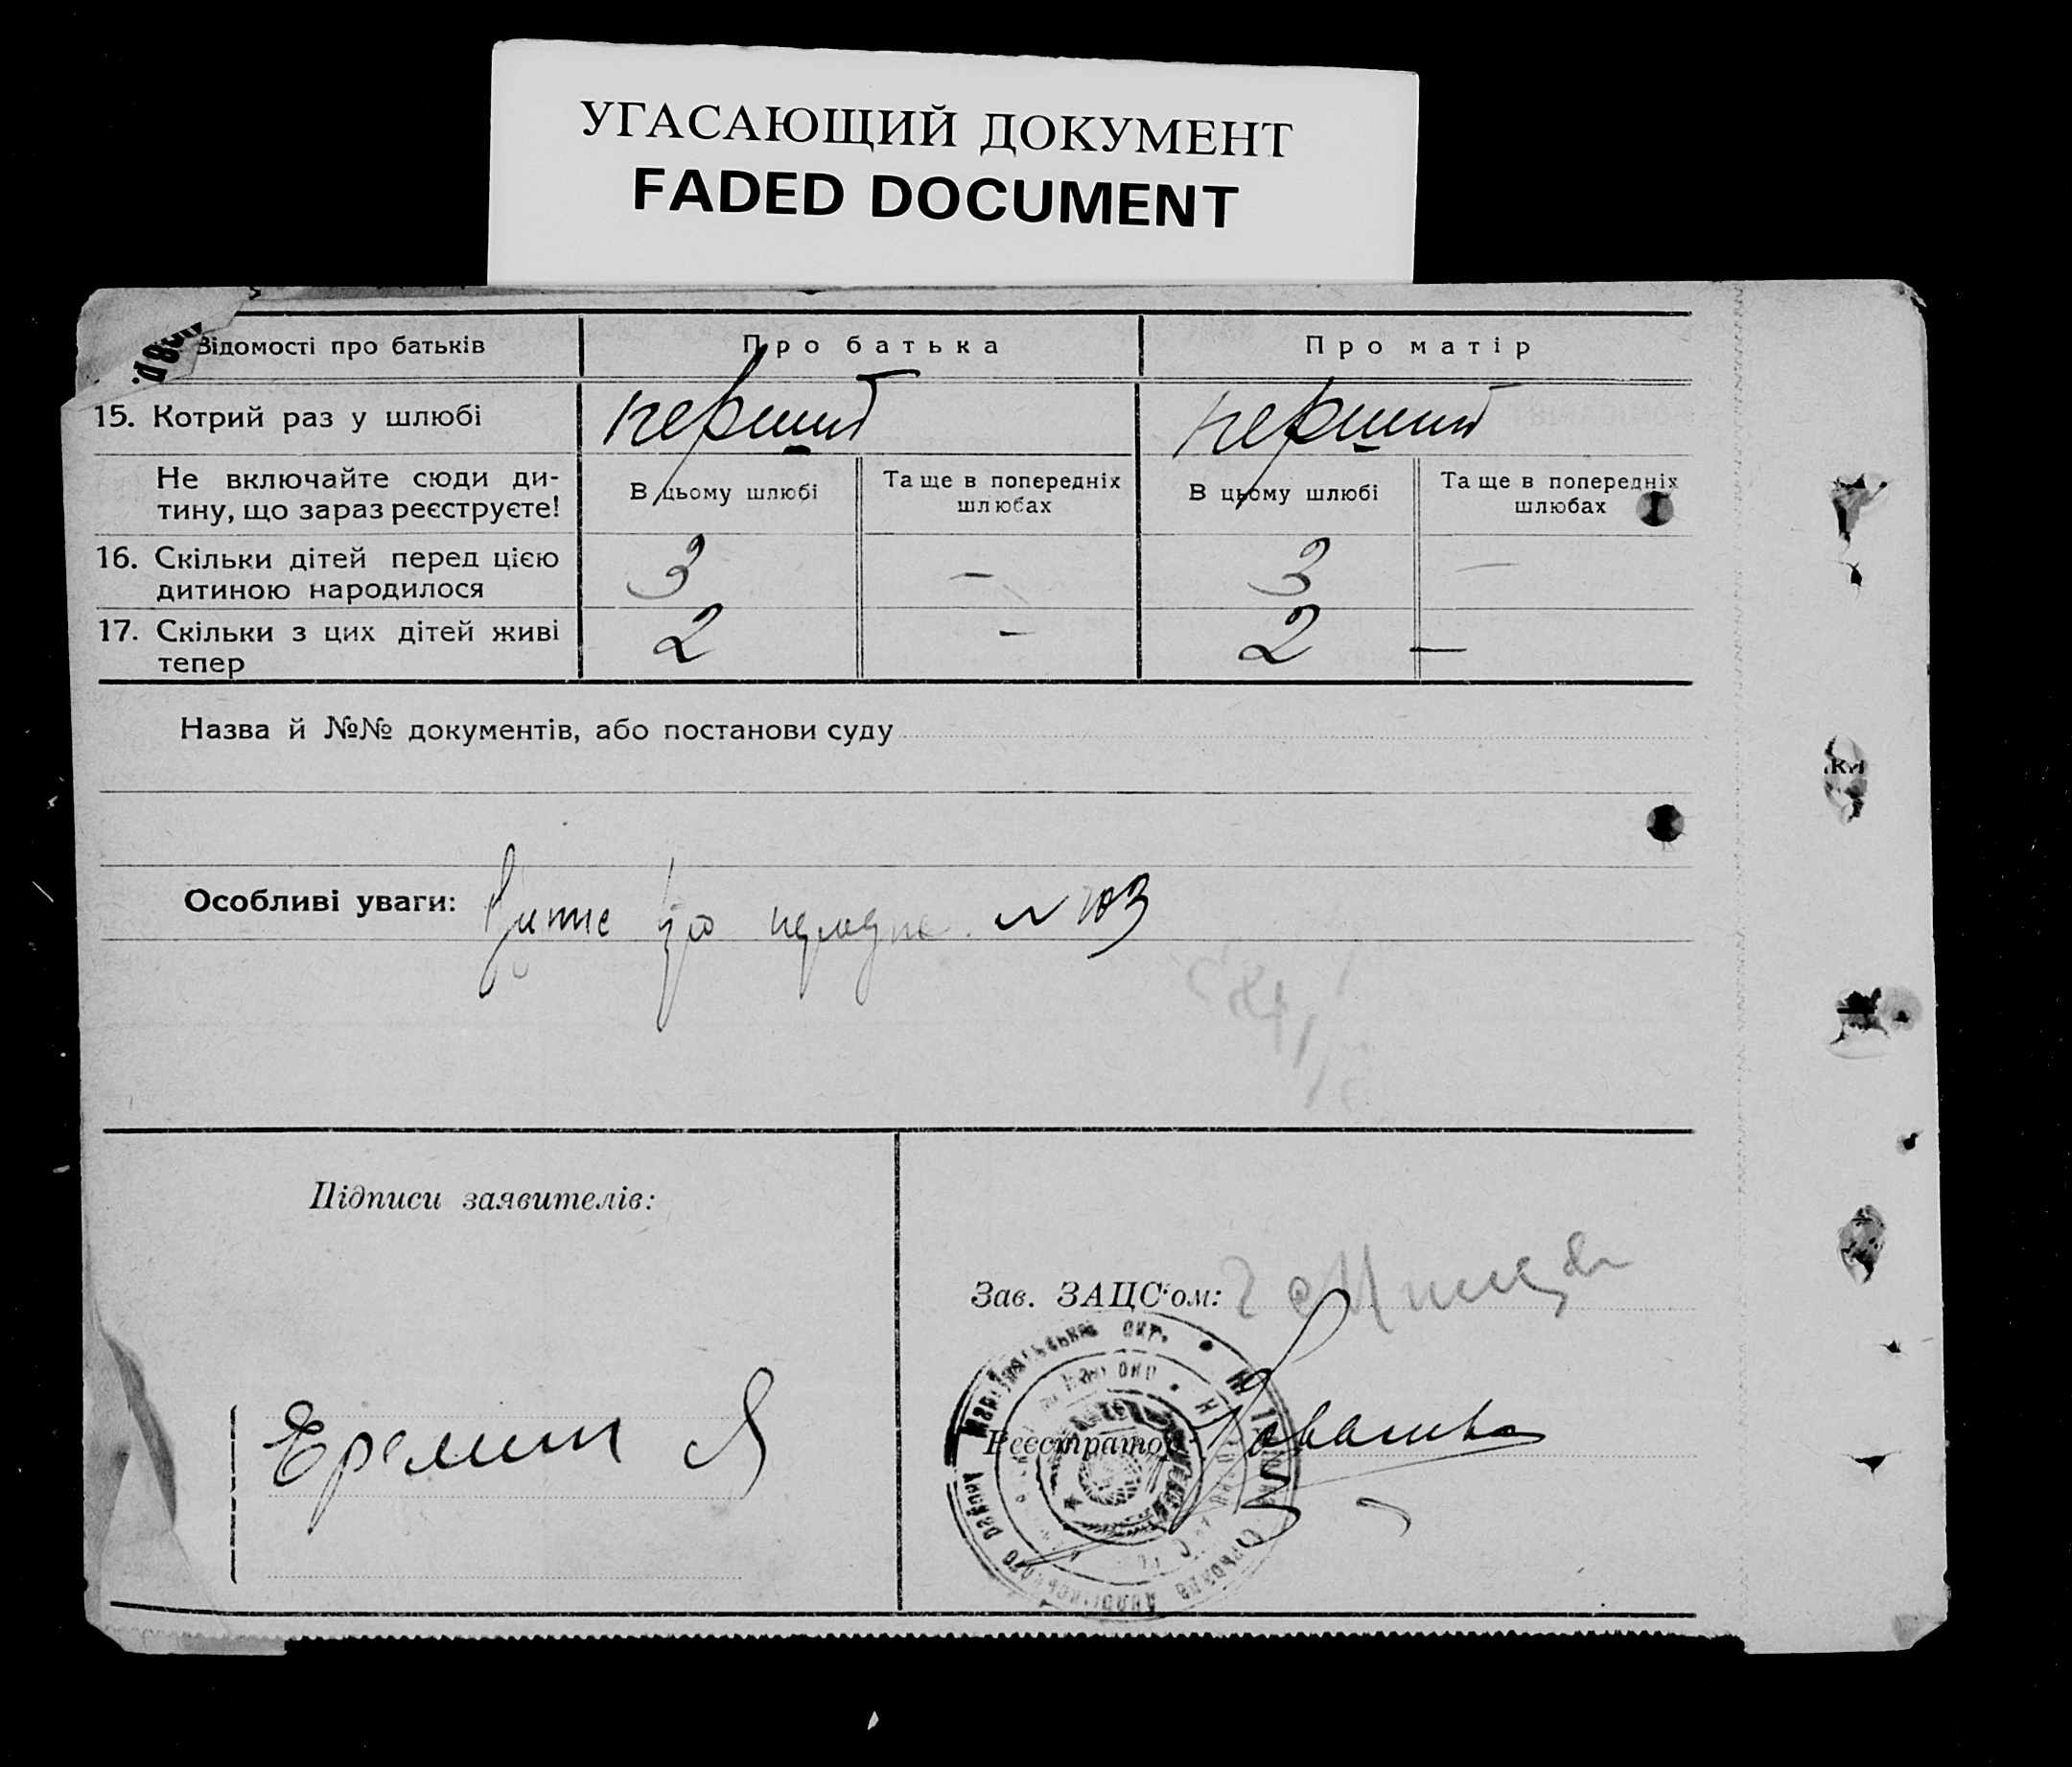 УГАСАЮЩИЙ ДОКУМЕНТ
FADED DOCUMENT
Відомості про батьків
Про батька
Про матір
15. Котрий раз у шлюбі
перший
перший
Не включайте сюди ди-
тину, що зараз реєструєте!
В цьому шлюбі
Та ще в попередніх
шлюбах
В цьому шлюбі
Та ще в попередніх
шлюбах
16. Скільки дітей перед цією
дитиною народилося
3
—
3
—
17. Скільки з цих дітей живі
тепер
2
—
2
—
Назва й №№ документів, або постанови суду
Особливі уваги:
Підписи заявителів:
Зав. ЗАЦС'ом:
Реєстратор
Еремин Я